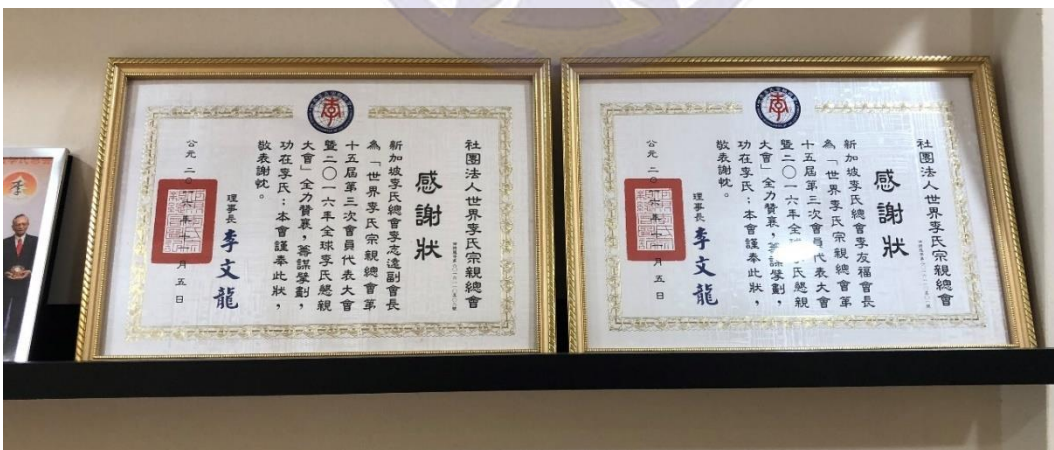 社團法人世界李氏宗親總會
感謝狀
新加坡李氏總會李志遠副會長
為「世界李氏宗親總會第
十五屆第三次會員代表大會
暨二〇一六年全球李氏懇親
大會」全力贊襄，籌謀擘劃，
功在李氏；本會謹奉此狀，
敬表謝忱。
理事長 李文龍
公元二〇 年 月五日
社團法人世界李氏宗親總會
感謝狀
新加坡李氏總會李友福會長
為「世界李氏宗親總會第
十五屆第三次會員代表大會
暨二〇一六年全球李氏懇親
大會」全力贊襄，籌謀擘劃，
功在李氏；本會謹奉此狀，
敬表謝忱。
理事長 李文龍
公元二〇 年 月五日
李